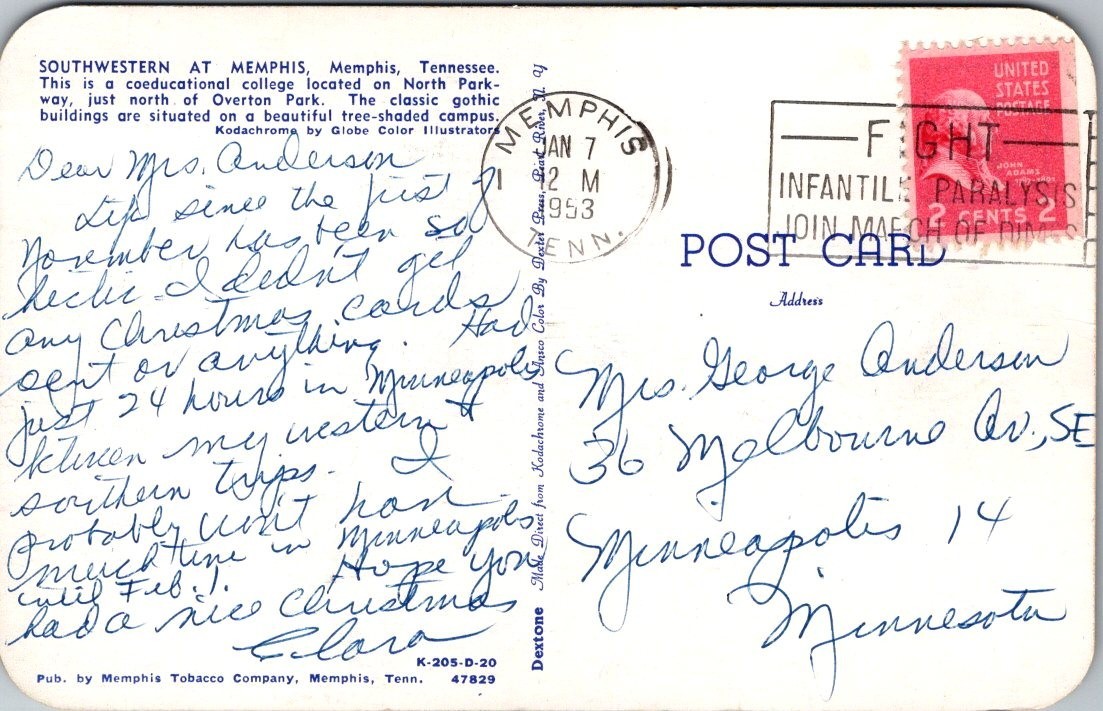 SOUTHWESTERN AT MEMPHIS, Memphis, Tennessee.
This is a coeducational college located on North Park-
way, just north of Overton Park. The classic gothic
buildings are situated on a beautiful tree-shaded campus.
Kodachrome by Globe Color Illustrators
Dear Mrs. Anderson
Life since the first of
November has been so
hectic I didn't get
any Christmas cards
sent or anything. Had
just 24 hours in Minneapolis
between my western &
southern trips. I
probably won't have
much time in Minneapolis
until Feb. 1. Hope you
had a nice Christmas
Clara
K-205-D-20
Pub. by Memphis Tobacco Company, Memphis, Tenn. 47829
Dextone Made Direct from Kodachrome and Ansco Color By Dexter Press, Pearl River, N. Y
MEMPHIS
JAN 7
2 M
1953
TENN.
FIGHT
INFANTILE PARALYSIS
JOIN MARCH OF DIMES
UNITED
STATES
POSTAGE
JOHN
ADAMS
2 CENTS 2
POST CARD
Address
Mrs. George Anderson
36 Melbourne Av., SE
Minneapolis 14
Minnesota